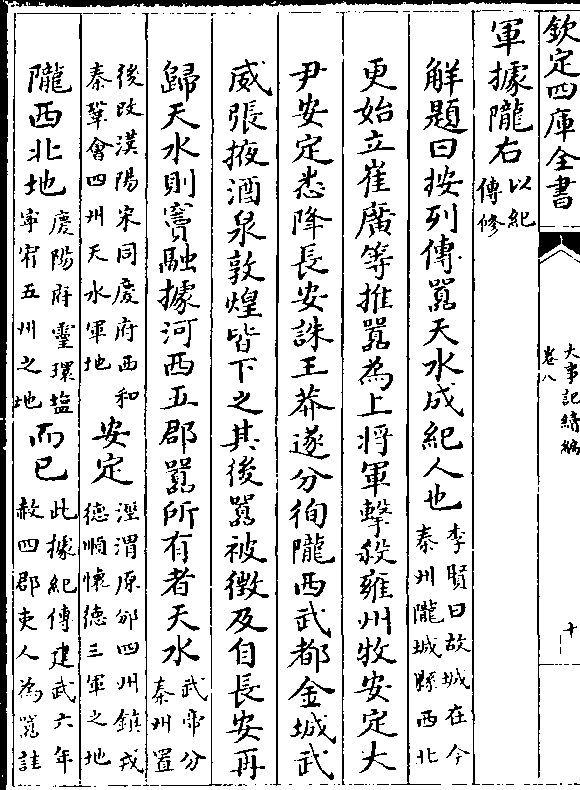 欽定四庫全書
大事記續編
卷八
十
軍據隴右以紀
傳修
解題曰按列傳囂天水成紀人也李賢曰故城在今
秦州隴城縣西北
更始立崔廣等推囂為上將軍擊殺雍州牧安定大
尹安定悉降長安誅王莽遂分徇隴西武都金城武
威張掖酒泉敦煌皆下之其後囂被徵及自長安再
歸天水則竇融據河西五郡囂所有者天水武帝分
秦州置
後改漢陽宋同慶府西和
秦鞏會四州天水軍地安定涇渭原邠四州鎮戎
德順懷德三軍之地
隴西北地慶陽府靈環塩
寧宥五州之地而已此據紀傳建武六年
赦四郡吏人為囂詿